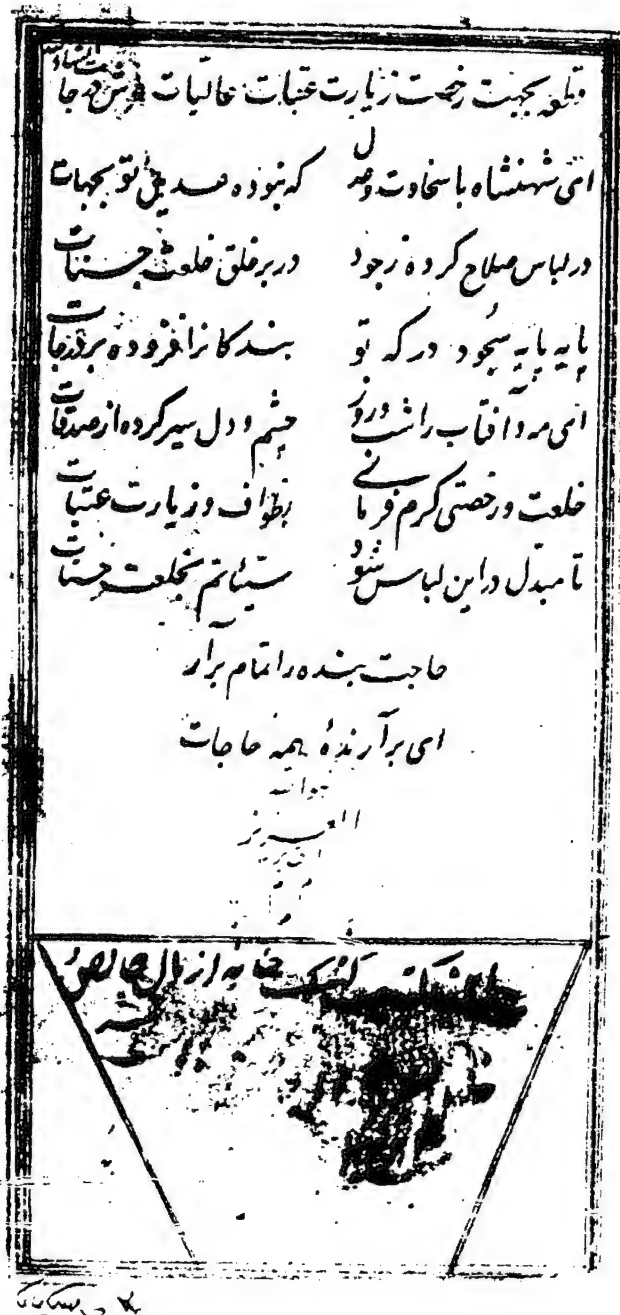 قطعه بجهت رخصت زیارت عتبات عالیات عرش درجات
ای شهنشاه با سخاوت و عدل که نبوده عدیل تو بجهات
در لباس صلاح کرده ز جود در بر خلق خلعت حسنات
پایه پایه سجود درگه تو بندگانرا فزوده بر درجات
ای مه و آفتاب را شب و روز چشم و دل سیر کرده از صدقات
خلعت و رخصتی کرم فرمائی بطواف و زیارت عتبات
تا مبدل در این لباس شود سیئاتم بخلعت حسنات
حاجت بنده را تمام برآر
ای برآرندهٔ همه حاجات
هو الله
العزیز
خانه از مال